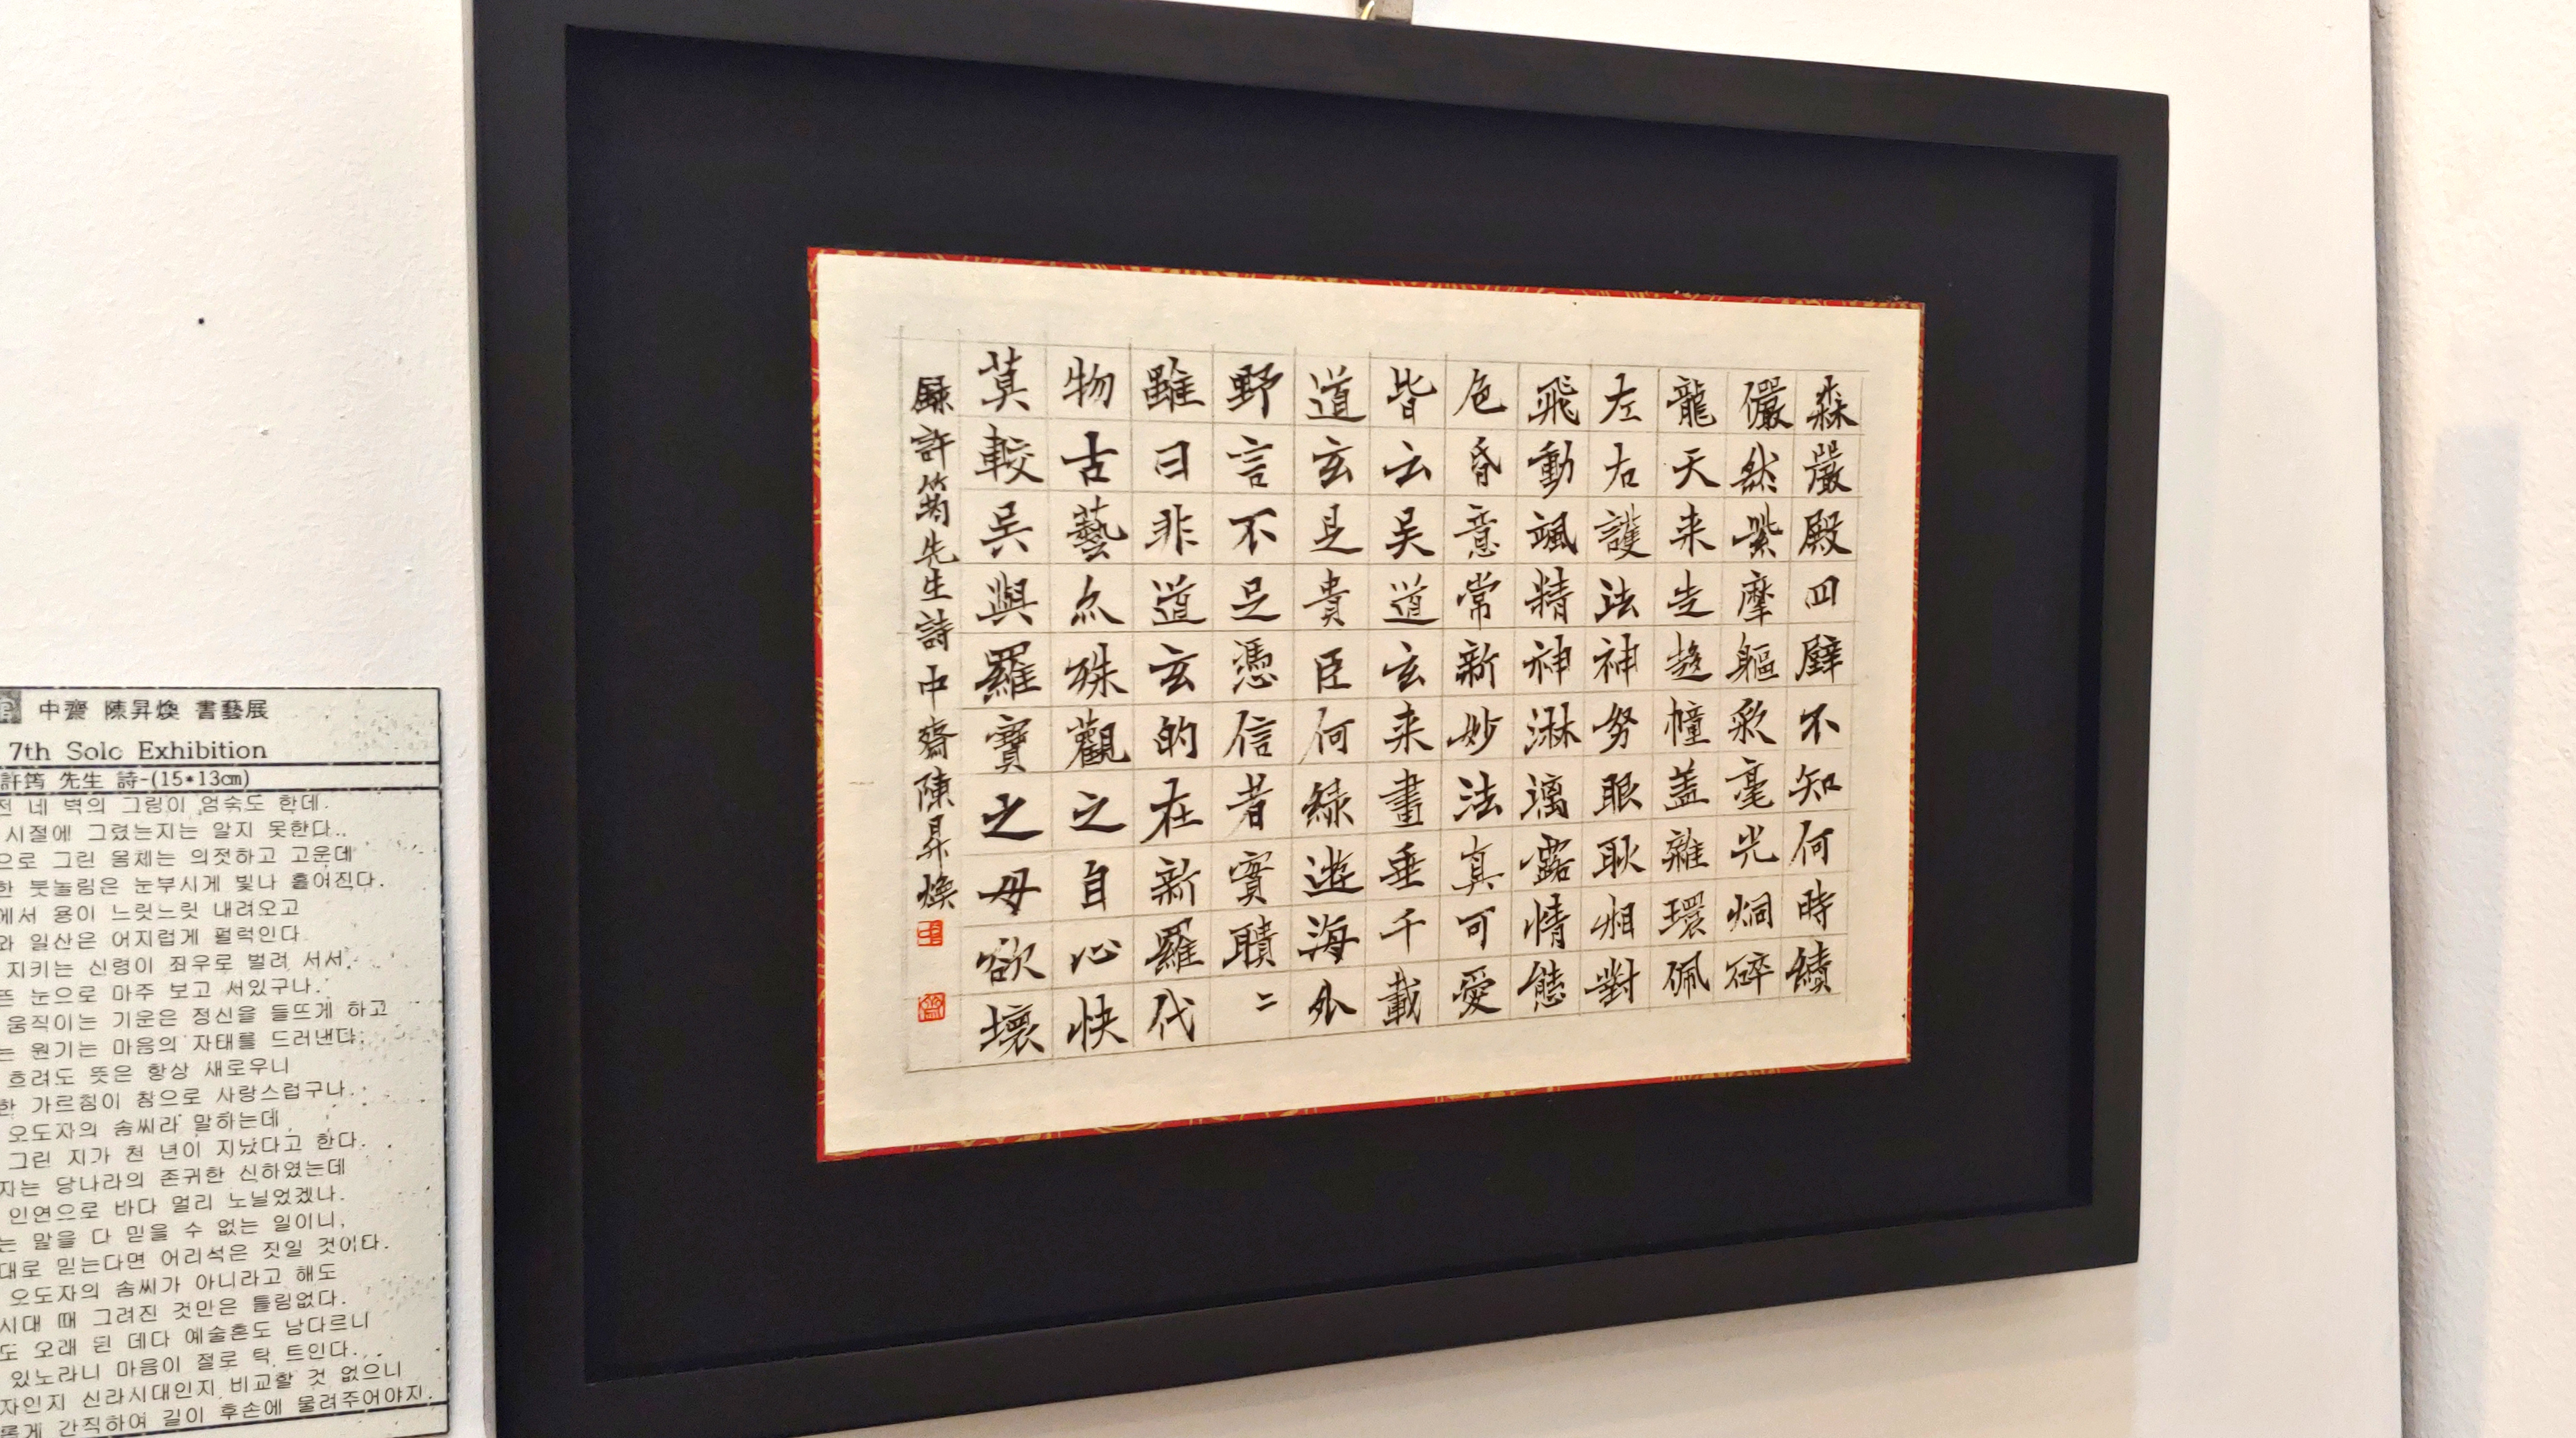 中齋 陳昇煥 書藝展
7th Solo Exhibition
許筠 先生 詩-(15*13㎝)
전 네 벽의 그림이 엄숙도 한데.
시절에 그렸는지는 알지 못한다.
으로 그린 몸체는 의젓하고 고운데
한 붓놀림은 눈부시게 빛나 흩어진다.
에서 용이 느릿느릿 내려오고
와 일산은 어지럽게 펄럭인다.
지키는 신령이 좌우로 벌려 서서
뜬 눈으로 마주 보고 서있구나.
움직이는 기운은 정신을 들뜨게 하고
는 원기는 마음의 자태를 드러낸다.
흐려도 뜻은 항상 새로우니
한 가르침이 참으로 사랑스럽구나.
오도자의 솜씨라 말하는데
그린 지가 천 년이 지났다고 한다.
자는 당나라의 존귀한 신하였는데
인연으로 바다 멀리 노닐었겠나.
는 말을 다 믿을 수 없는 일이니,
대로 믿는다면 어리석은 짓일 것이다.
오도자의 솜씨가 아니라고 해도
시대 때 그려진 것만은 틀림없다.
도 오래 된 데다 예술혼도 남다르니
있노라니 마음이 절로 탁 트인다.
자인지 신라시대인지 비교할 것 없으니
롭게 간직하여 길이 후손에 물려주어야지.
森嚴殿四壁不知何時繢
儼然紫摩軀彩毫光炯碎
龍天来告趍幢盖雜環佩
左右護法神努眼耿相對
飛動颯精神淋漓露情態
色昏意常新妙法真可愛
皆云吴道玄来畫垂千載
道玄是貴臣何緣遊海外
野言不足憑信者實聵〻
雖曰非道玄的在新羅代
物古藝亦殊觀之自心快
莫較吴與羅寶之毋欲壞
録許筠先生詩中齋陳昇煥